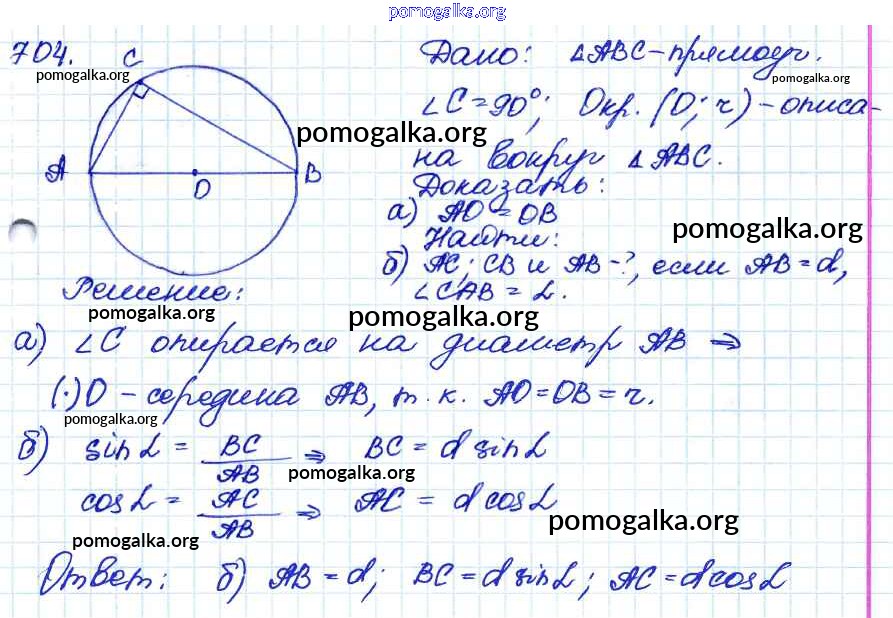 pomogalka.org
704.
pomogalka.org
C
A
O
B
Дано: △ABC-прямоуг.
pomogalka.org
∠C=90°; Окр. (O; r) - описа-
pomogalka.org
на вокруг △ABC.
Доказать:
а) AO = OB
pomogalka.org
Найти:
б) AC; CB и AB-?, если AB=d,
∠CAB = α.
Решение:
pomogalka.org
pomogalka.org
а) ∠C опирается на диаметр AB ⇒
(·)O - середина AB, т.к. AO=OB=r.
pomogalka.org
б) sinα = BC/AB ⇒ BC = d sinα
pomogalka.org
cosα = AC/AB ⇒ AC = d cosα
pomogalka.org
pomogalka.org
Ответ: б) AB = d; BC = d sinα; AC = d cosα